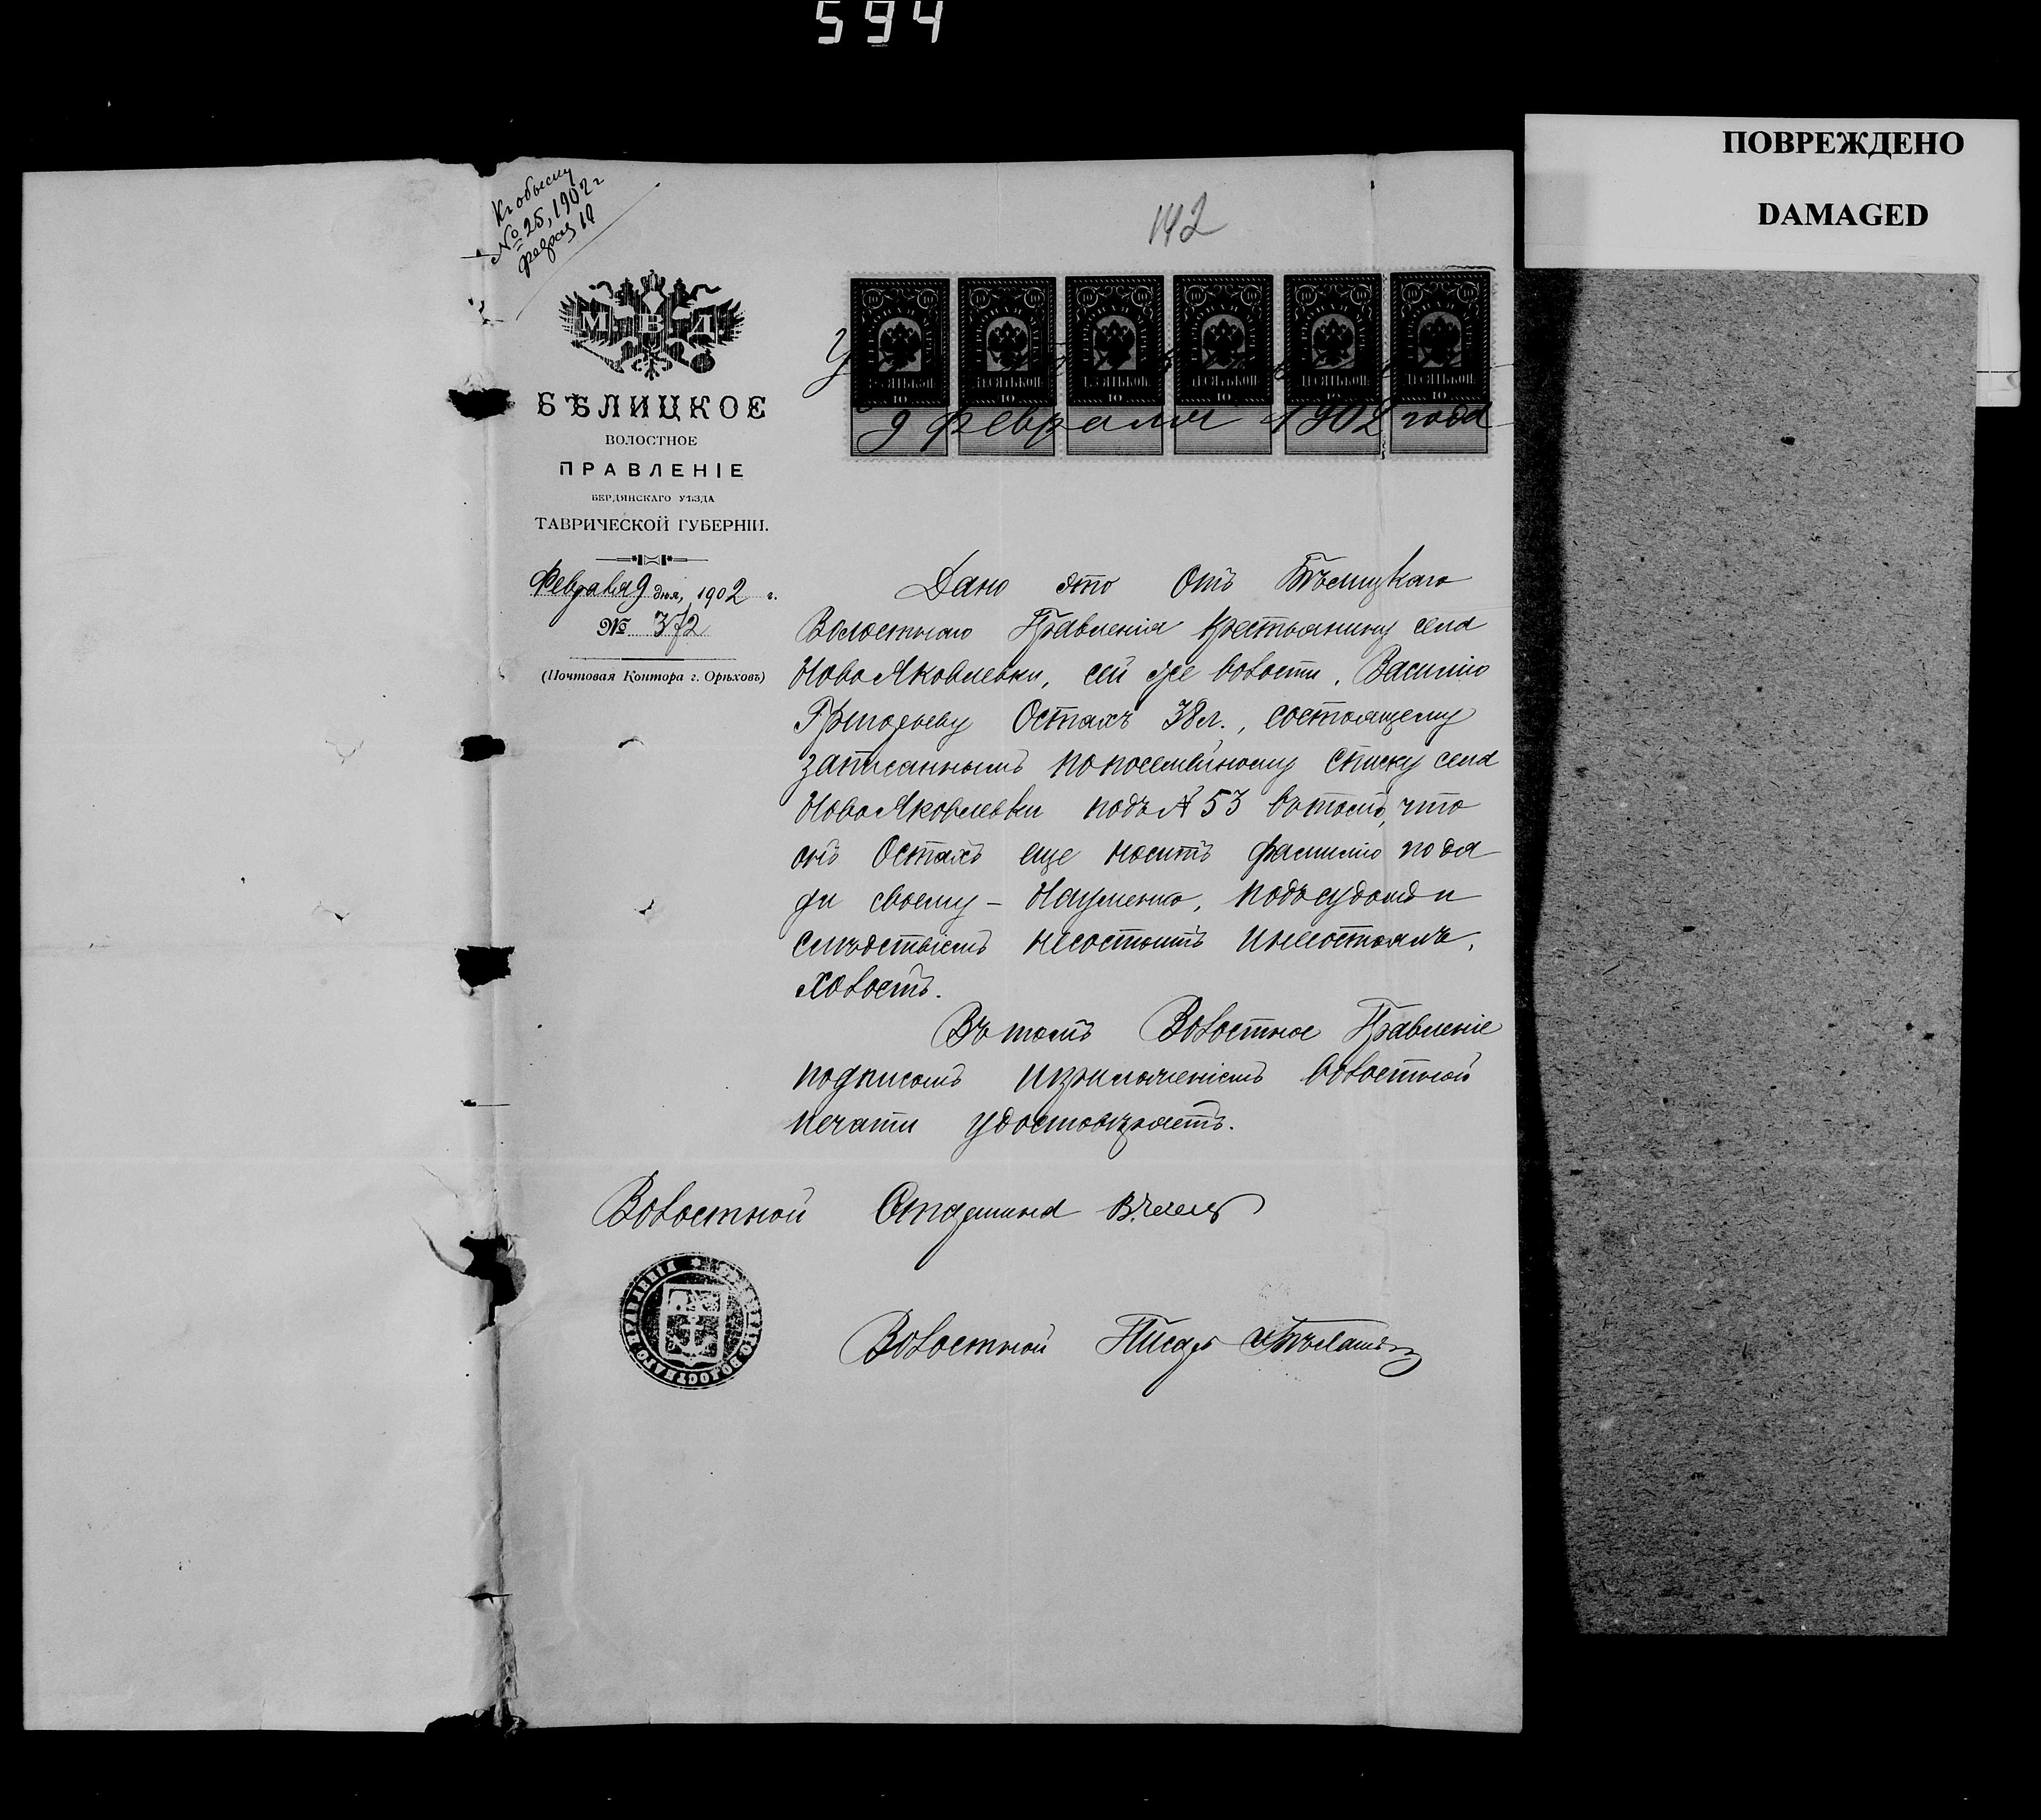 594
ПОВРЕЖДЕНО
DAMAGED
Къ обыску
№ 25, 1902 г
феврал 10
142
М В Д
БѢЛИЦКОЕ
ВОЛОСТНОЕ
ПРАВЛЕНІЕ
БЕРДЯНСКАГО УѢЗДА
ТАВРИЧЕСКОЙ ГУБЕРНІИ.
Февраля 9 дня, 1902 г.
№ 372
(Почтовая Контора г. Орѣховъ)
9 февраля 1902 года
Дано это отъ Бѣлицкаго
Волостнаго Правленія крестьянину села
НовоЯковлевки, сей же волости, Василію
Григорьеву Остахъ 38 л., состоящему
записаннымъ по посемейному списку села
НовоЯковлевки подъ № 53 въ томъ, что
онъ Остахъ еще носитъ фамилію по дѣ
ду своему – Науменко, подъ судомъ и
слѣдствіемъ не состоитъ и не состоялъ,
холостъ.
Въ томъ Волостное Правленіе
подписомъ и приложеніемъ волостной
печати удостовѣряетъ.
Волостной Старшина
Волостной Писарь
ВОЛОСТНАГО ПРАВЛЕНІЯ